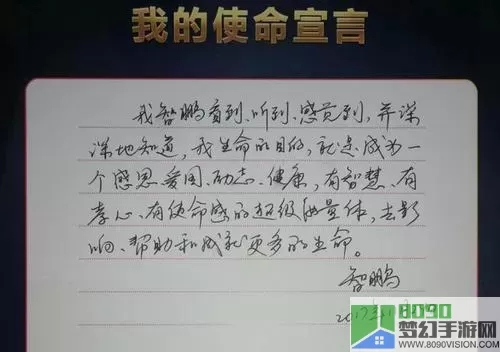 我的使命宣言
我智鹏看到、听到、感觉到，并深
深地知道，我生命的目的，就是成为一
个感恩、爱国、励志、健康，有智慧、有
孝心、有使命感的超级能量体，去影
响、帮助和成就更多的生命。
智鹏
2017年
8090
梦幻手游网
WWW.8090VISION.COM